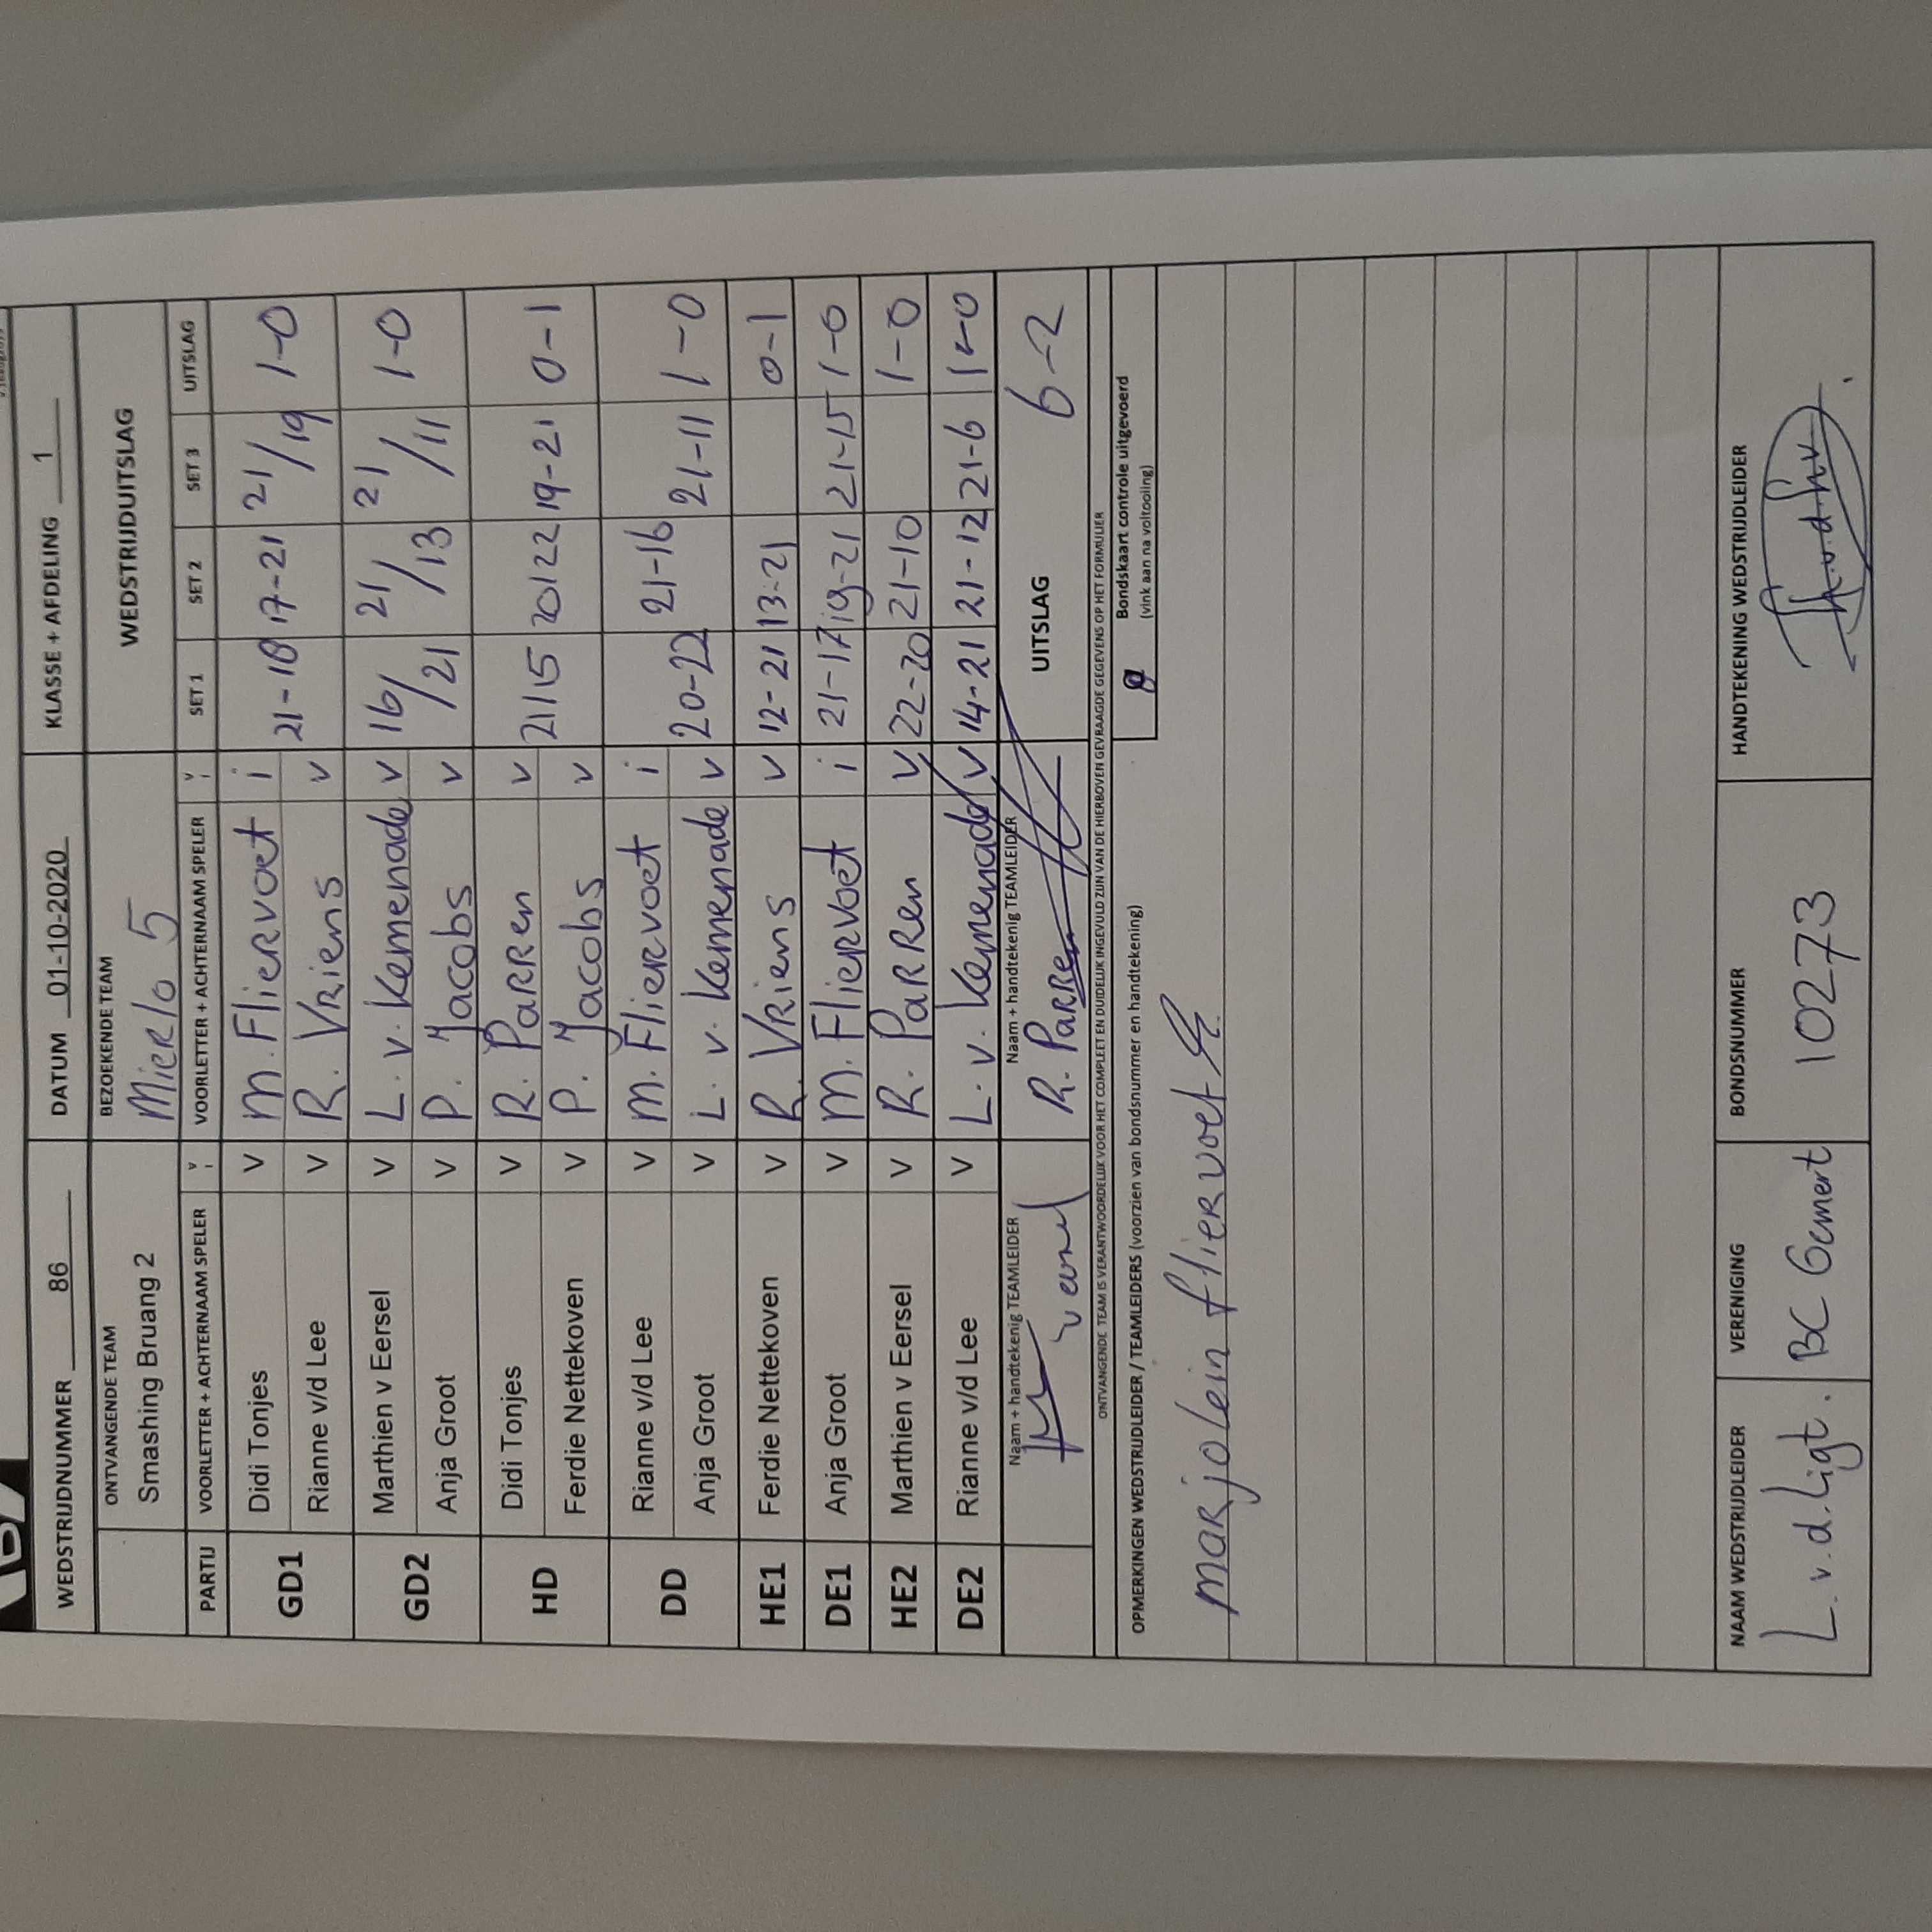 WEDSTRIJDNUMMER 86 DATUM 01-10-2020 KLASSE + AFDELING 1
ONTVANGENDE TEAM BEZOEKENDE TEAM WEDSTRIJDUITSLAG
Smashing Bruang 2 Mierlo 5
PARTIJ VOORLETTER + ACHTERNAAM SPELER V i VOORLETTER + ACHTERNAAM SPELER V i SET 1 SET 2 SET 3 UITSLAG
GD1 Didi Tonjes V M. Fliervoet i 21-18 17-21 21/19 1-0
Rianne v/d Lee V R. Vriens v
GD2 Marthien v Eersel V L. v. Kemenade v 16/21 21/13 21/11 1-0
Anja Groot V P. Jacobs v
HD Didi Tonjes V R. Parren v 21 15 20 22 19-21 0-1
Ferdie Nettekoven V P. Jacobs v
DD Rianne v/d Lee V M. Fliervoet i 20-22 21-16 21-11 1-0
Anja Groot V L. v. Kemenade v
HE1 Ferdie Nettekoven V R. Vriens v 12-21 13-21 0-1
DE1 Anja Groot V M. Fliervoet i 21-17 19-21 21-15 1-0
HE2 Marthien v Eersel V R. Parren v 22-20 21-10 1-0
DE2 Rianne v/d Lee V L. v. Kemenade v 14-21 21-12 21-6 1-0
Naam + handtekenig TEAMLEIDER Naam + handtekenig TEAMLEIDER
R. Parren UITSLAG 6-2
ONTVANGENDE TEAM IS VERANTWOORDELIJK VOOR HET COMPLEET EN DUIDELIJK INGEVULD ZIJN VAN DE HIERBOVEN GEVRAAGDE GEGEVENS OP HET FORMULIER
OPMERKINGEN WEDSTRIJDLEIDER / TEAMLEIDERS (voorzien van bondsnummer en handtekening) Bondskaart controle uitgevoerd
(vink aan na voltooiing)
marjolein fliervoet
NAAM WEDSTRIJDLEIDER VERENIGING BONDSNUMMER HANDTEKENING WEDSTRIJDLEIDER
L. v. d. Ligt. BC Gemert 10273